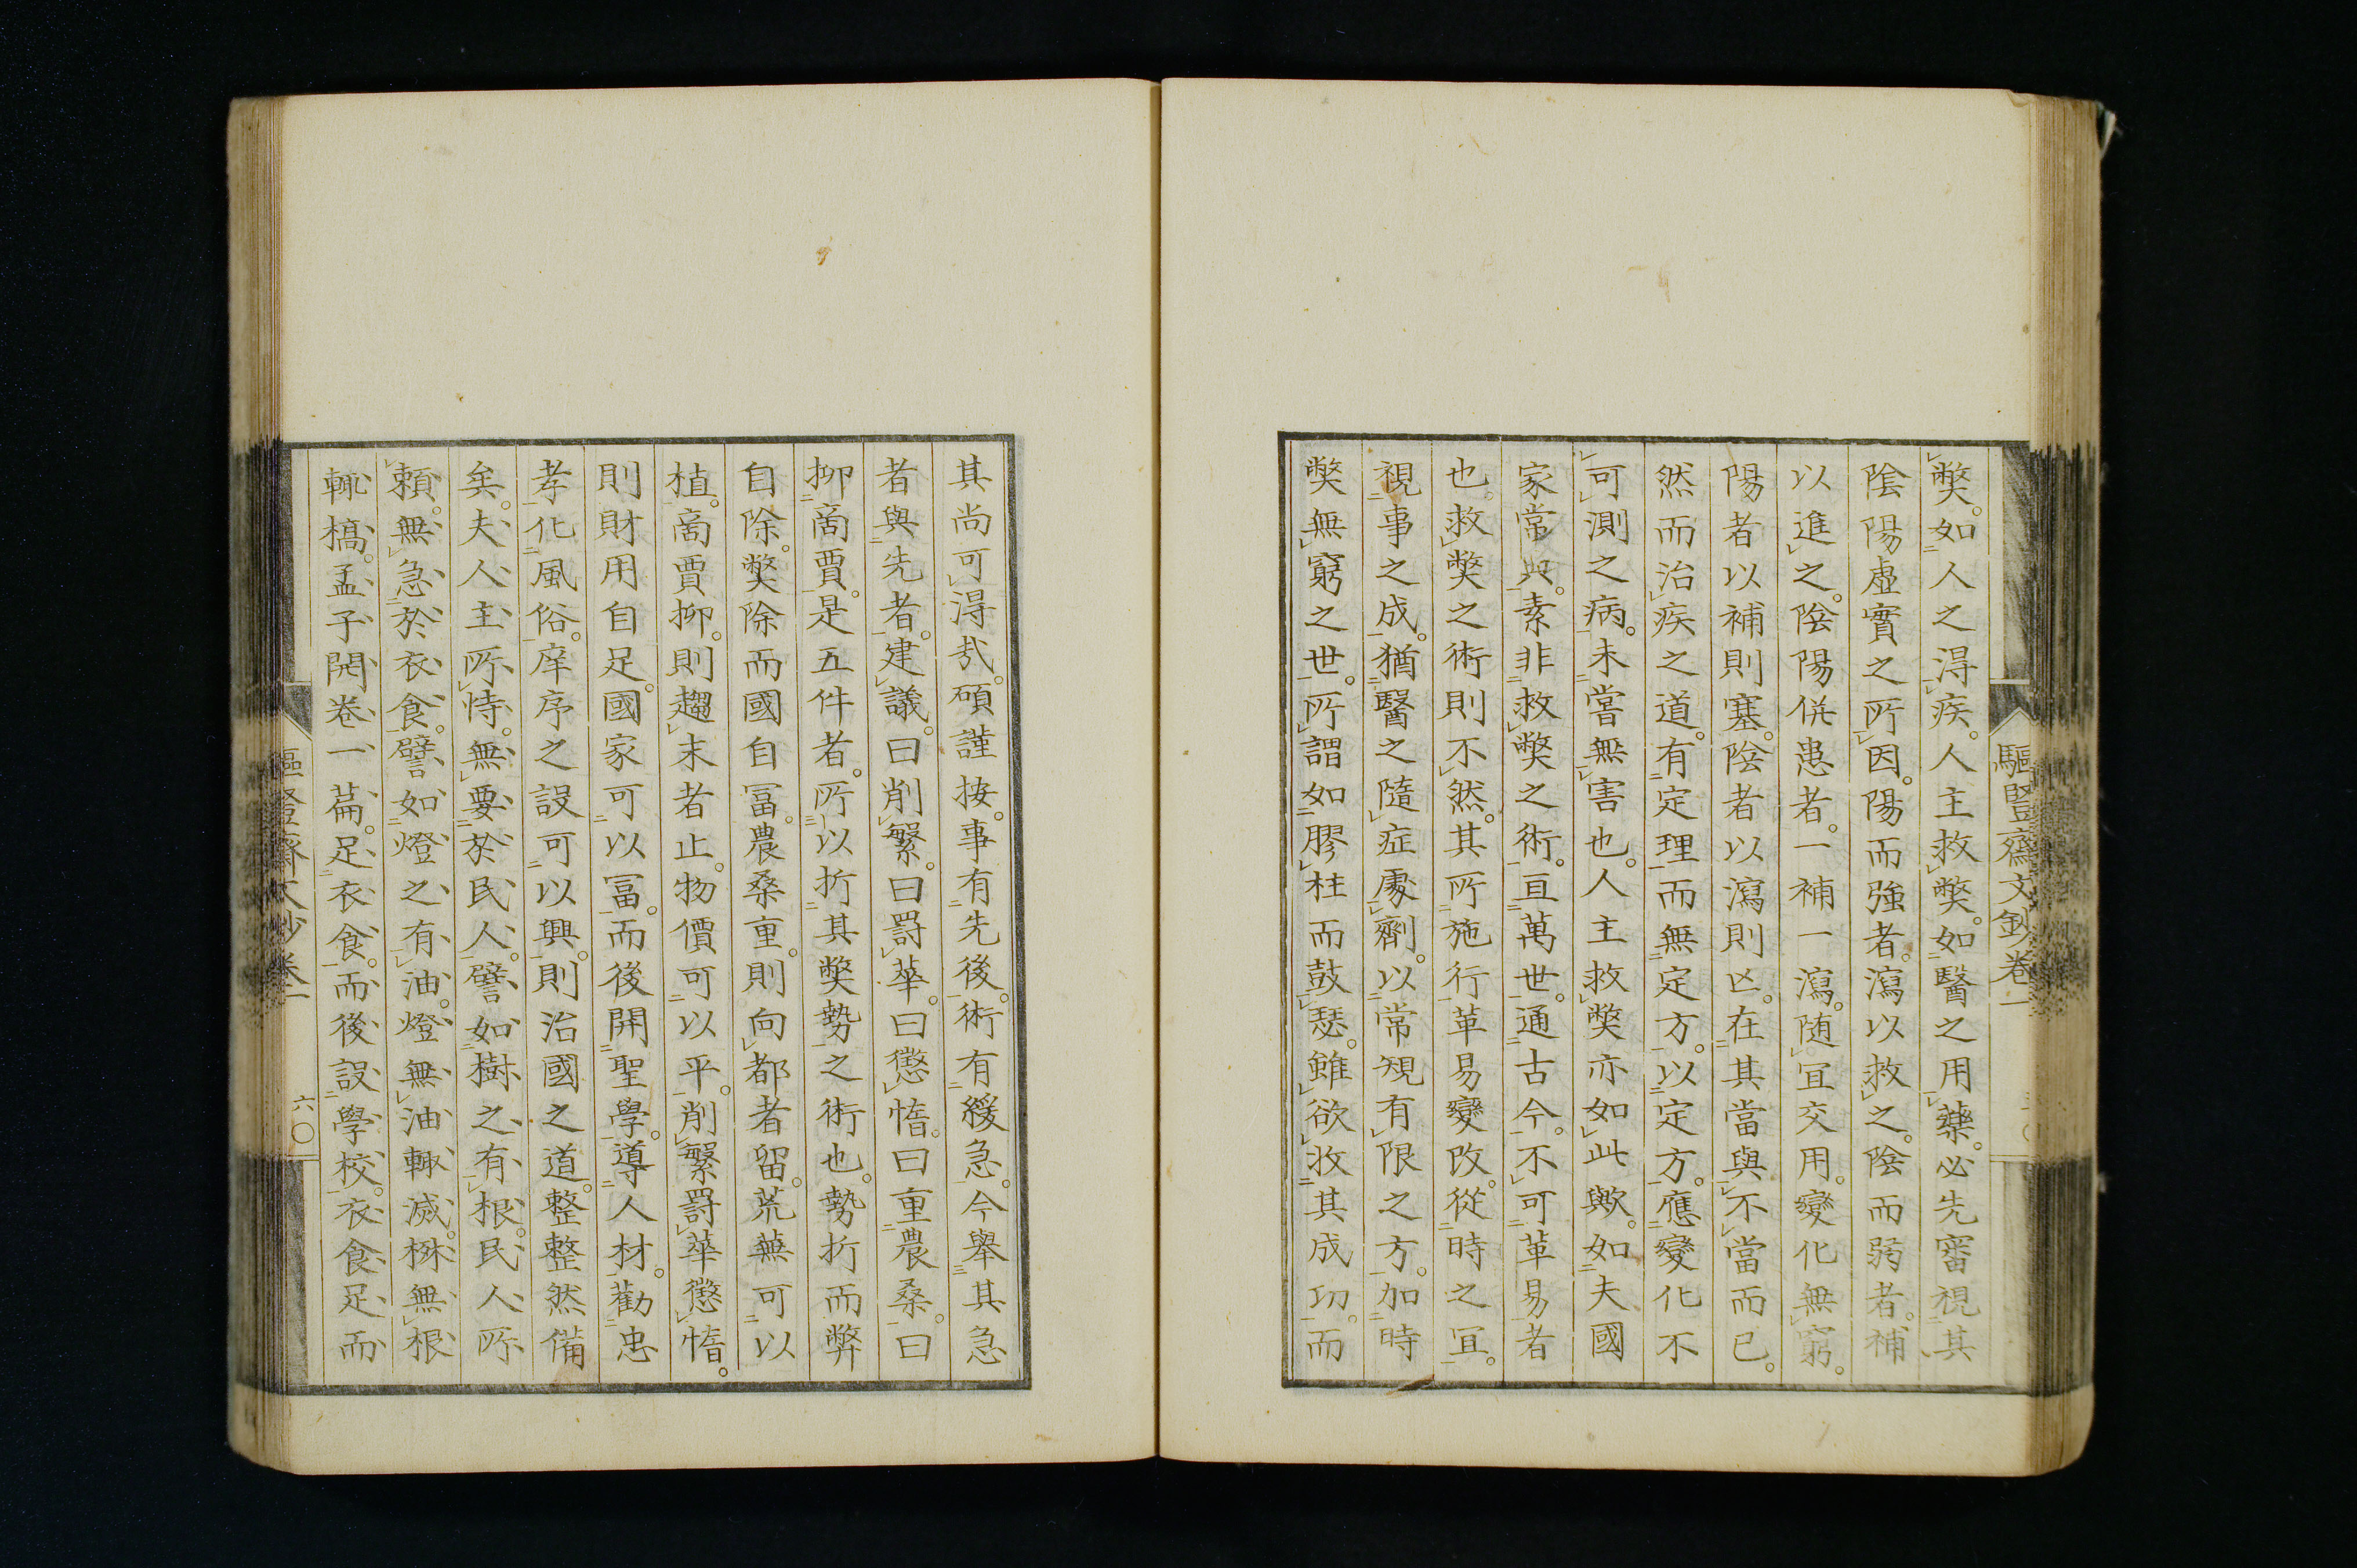 驅豎齋文鈔卷一
獘。如人之淂疾。人主救獘。如醫之用藥。必先審視其
陰陽虛實之所因。陽而強者。瀉以救之。陰而弱者。補
以進之。陰陽併患者。一補一瀉。随宜交用。變化無窮。
陽者以補則塞。陰者以瀉則亡。在其當與不當而已。
然而治疾之道。有定理而無定方。以定方。應變化不
可測之病。未嘗無害也。人主救獘亦如此歟。如夫國
家常典。素非救獘之術。亘萬世。通古今。不可革易者
也。救獘之術則不然。其所施行革易變改。從時之宜。
視事之成。猶醫之隨症處劑。以常規有限之方。加時
獘無窮之世。所謂如膠柱而鼓瑟。雖欲收其成功。而
其尚可淂㢤。碩謹按。事有先後。術有緩急。今舉其急
者與先者。建議。曰削繁。曰罸華。曰懲惰。曰重農桑。曰
抑啇賈。是五件者。所以折其獘勢之術也。勢折而弊
自除。獘除而國自冨。農桑重。則向都者留。荒蕪可以
植。啇賈抑。則趨末者止。物價可以平。削繁罸華懲惰。
則財用自足。國家可以冨。而後開聖學。導人材。勸忠
孝化風俗。庠序之設可以興。則治國之道。整整然備
矣。夫人主所恃。無要於民人。譬如樹之有根。民人所
頼。無急於衣食。譬如燈之有油。燈無油輙滅。樹無根
輙槁。孟子開卷一萹。足衣食。而後設學校。衣食足而
驅豎齋文鈔卷一
六〇